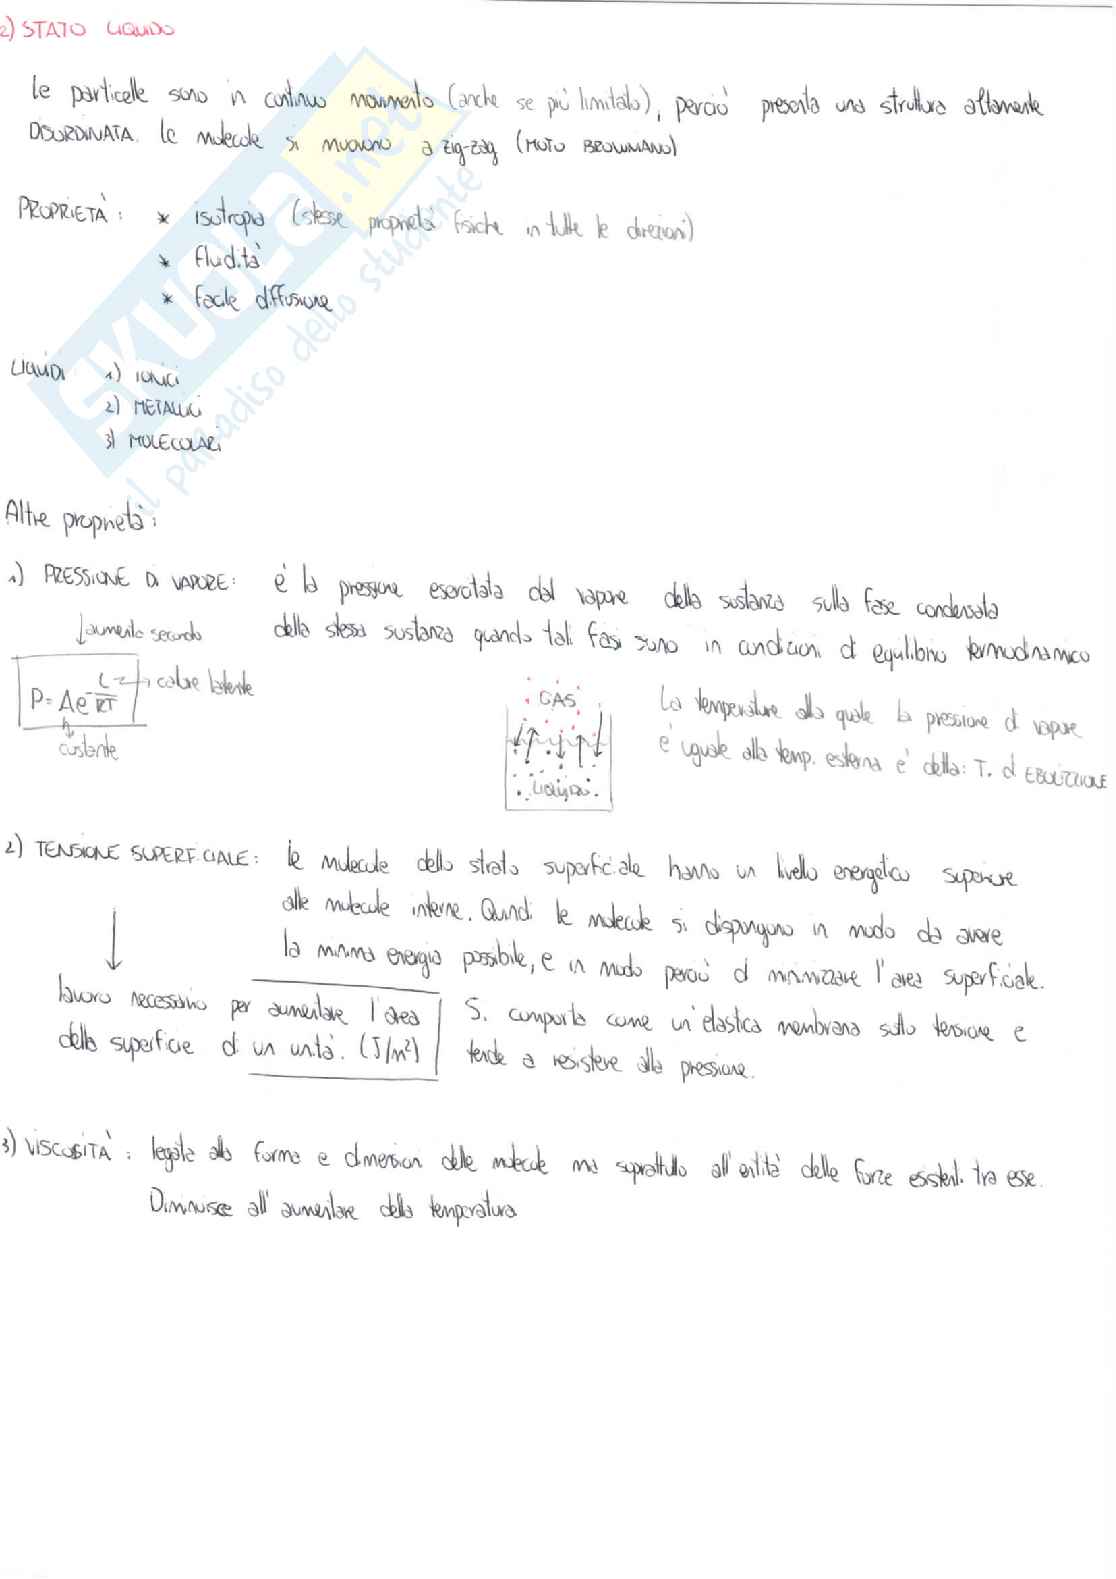 2) STATO LIQUIDO
le particelle sono in continuo movimento (anche se più limitato), perciò presenta una struttura altamente
DISORDINATA. Le molecole si muovono a zig-zag (MOTO BROWNIANO)
PROPRIETÀ: * isotropia (stesse proprietà fisiche in tutte le direzioni)
* fluidità
* facile diffusione
LIQUIDI 1) IONICI
2) METALLICI
3) MOLECOLARI
Altre proprietà:
1) PRESSIONE DI VAPORE: è la pressione esercitata dal vapore della sostanza sulla fase condensata
della stessa sostanza quando tali fasi sono in condizioni di equilibrio termodinamico
aumenta secondo
P = Ae^-L/RT → calore latente
costante
GAS
LIQUIDI
La temperatura alla quale la pressione di vapore
è uguale alla temp. esterna è detta: T. di EBOLLIZIONE
2) TENSIONE SUPERFICIALE: le molecole dello strato superficiale hanno un livello energetico superiore
alle molecole interne. Quindi le molecole si dispongono in modo da avere
la minima energia possibile, e in modo perciò di minimizzare l'area superficiale.
Si comporta come un'elastica membrana sotto tensione e
tende a resistere alla pressione.
lavoro necessario per aumentare l'area
della superficie di un unità. (J/m²)
3) VISCOSITÀ: legata alla forma e dimensioni delle molecole ma soprattutto all'entità delle forze esistenti tra esse.
Diminuisce all'aumentare della temperatura
SKUOLA.net
il paradiso dello studente